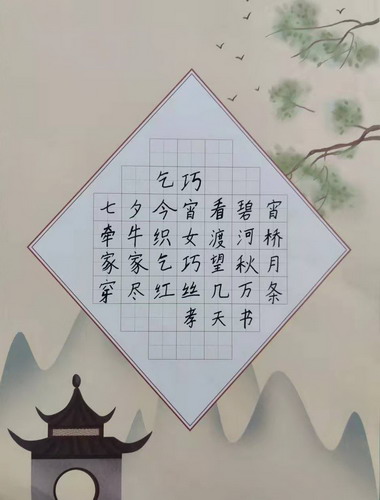 乞巧
七夕今宵看碧宵
牵牛织女渡河桥
家家乞巧望秋月
穿尽红丝几万条
孝天书